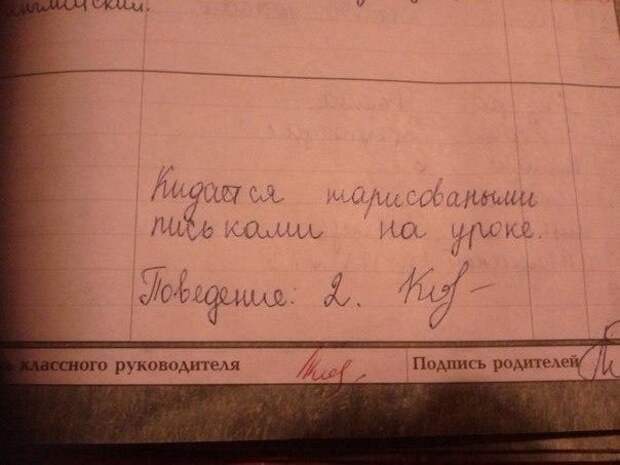 английский.
Кидается нарисоваными
письками на уроке.
Поведение: 2.
классного руководителя
Подпись родителей